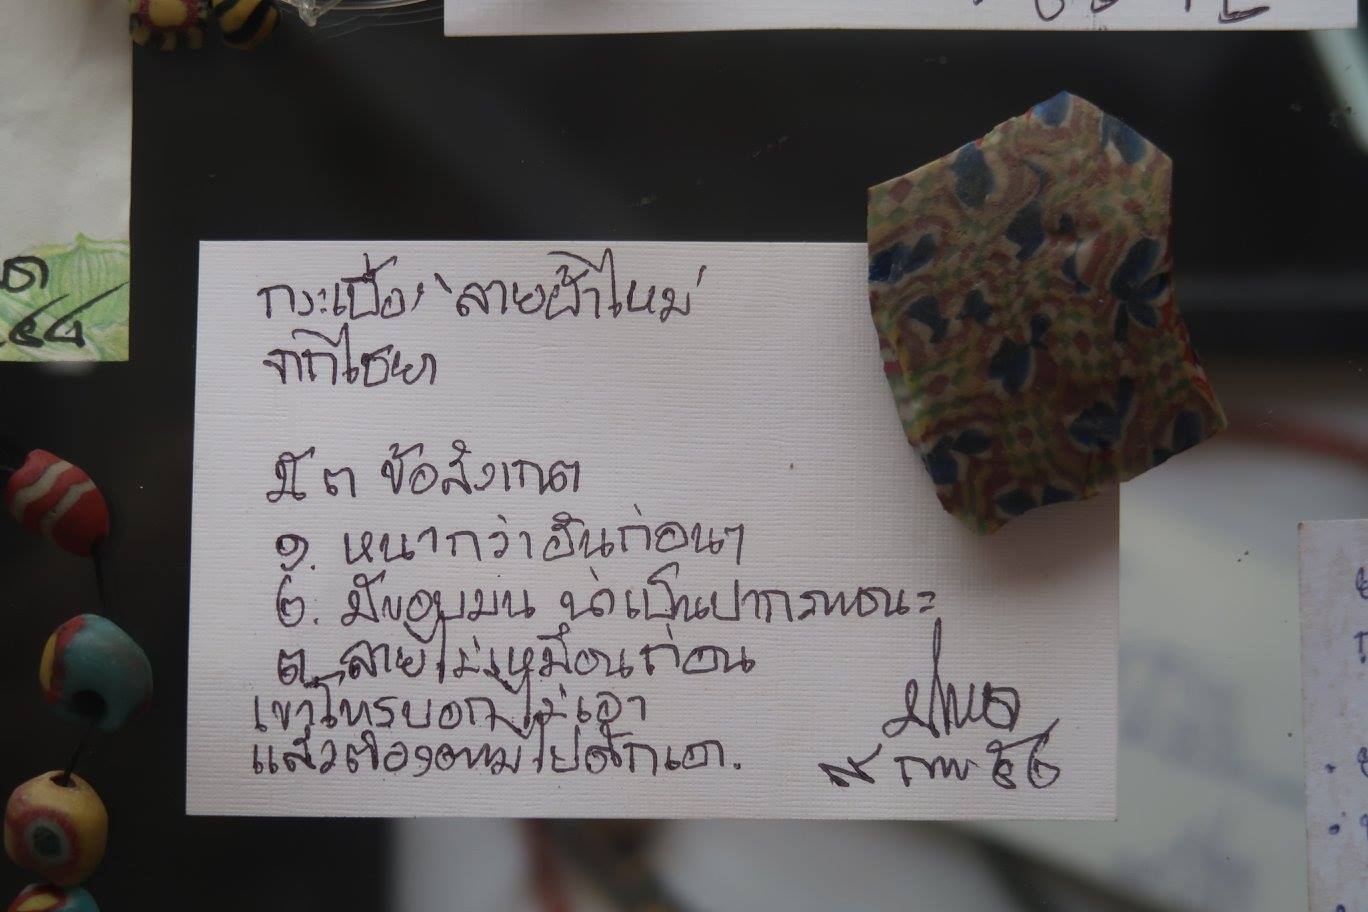 กระเบื้อง ลายผ้าไหม
จากไชยา
มี ๓ ข้อสังเกต
๑. หนากว่าอันก่อนๆ
๒. มีขอบมน น่าเป็นปากภาชนะ
๓. ลายไม่เหมือนก่อน
เขาโทรบอกไม่เอา
แล้วต้องตามไปดักเอา.
๙ กพ ๕๒